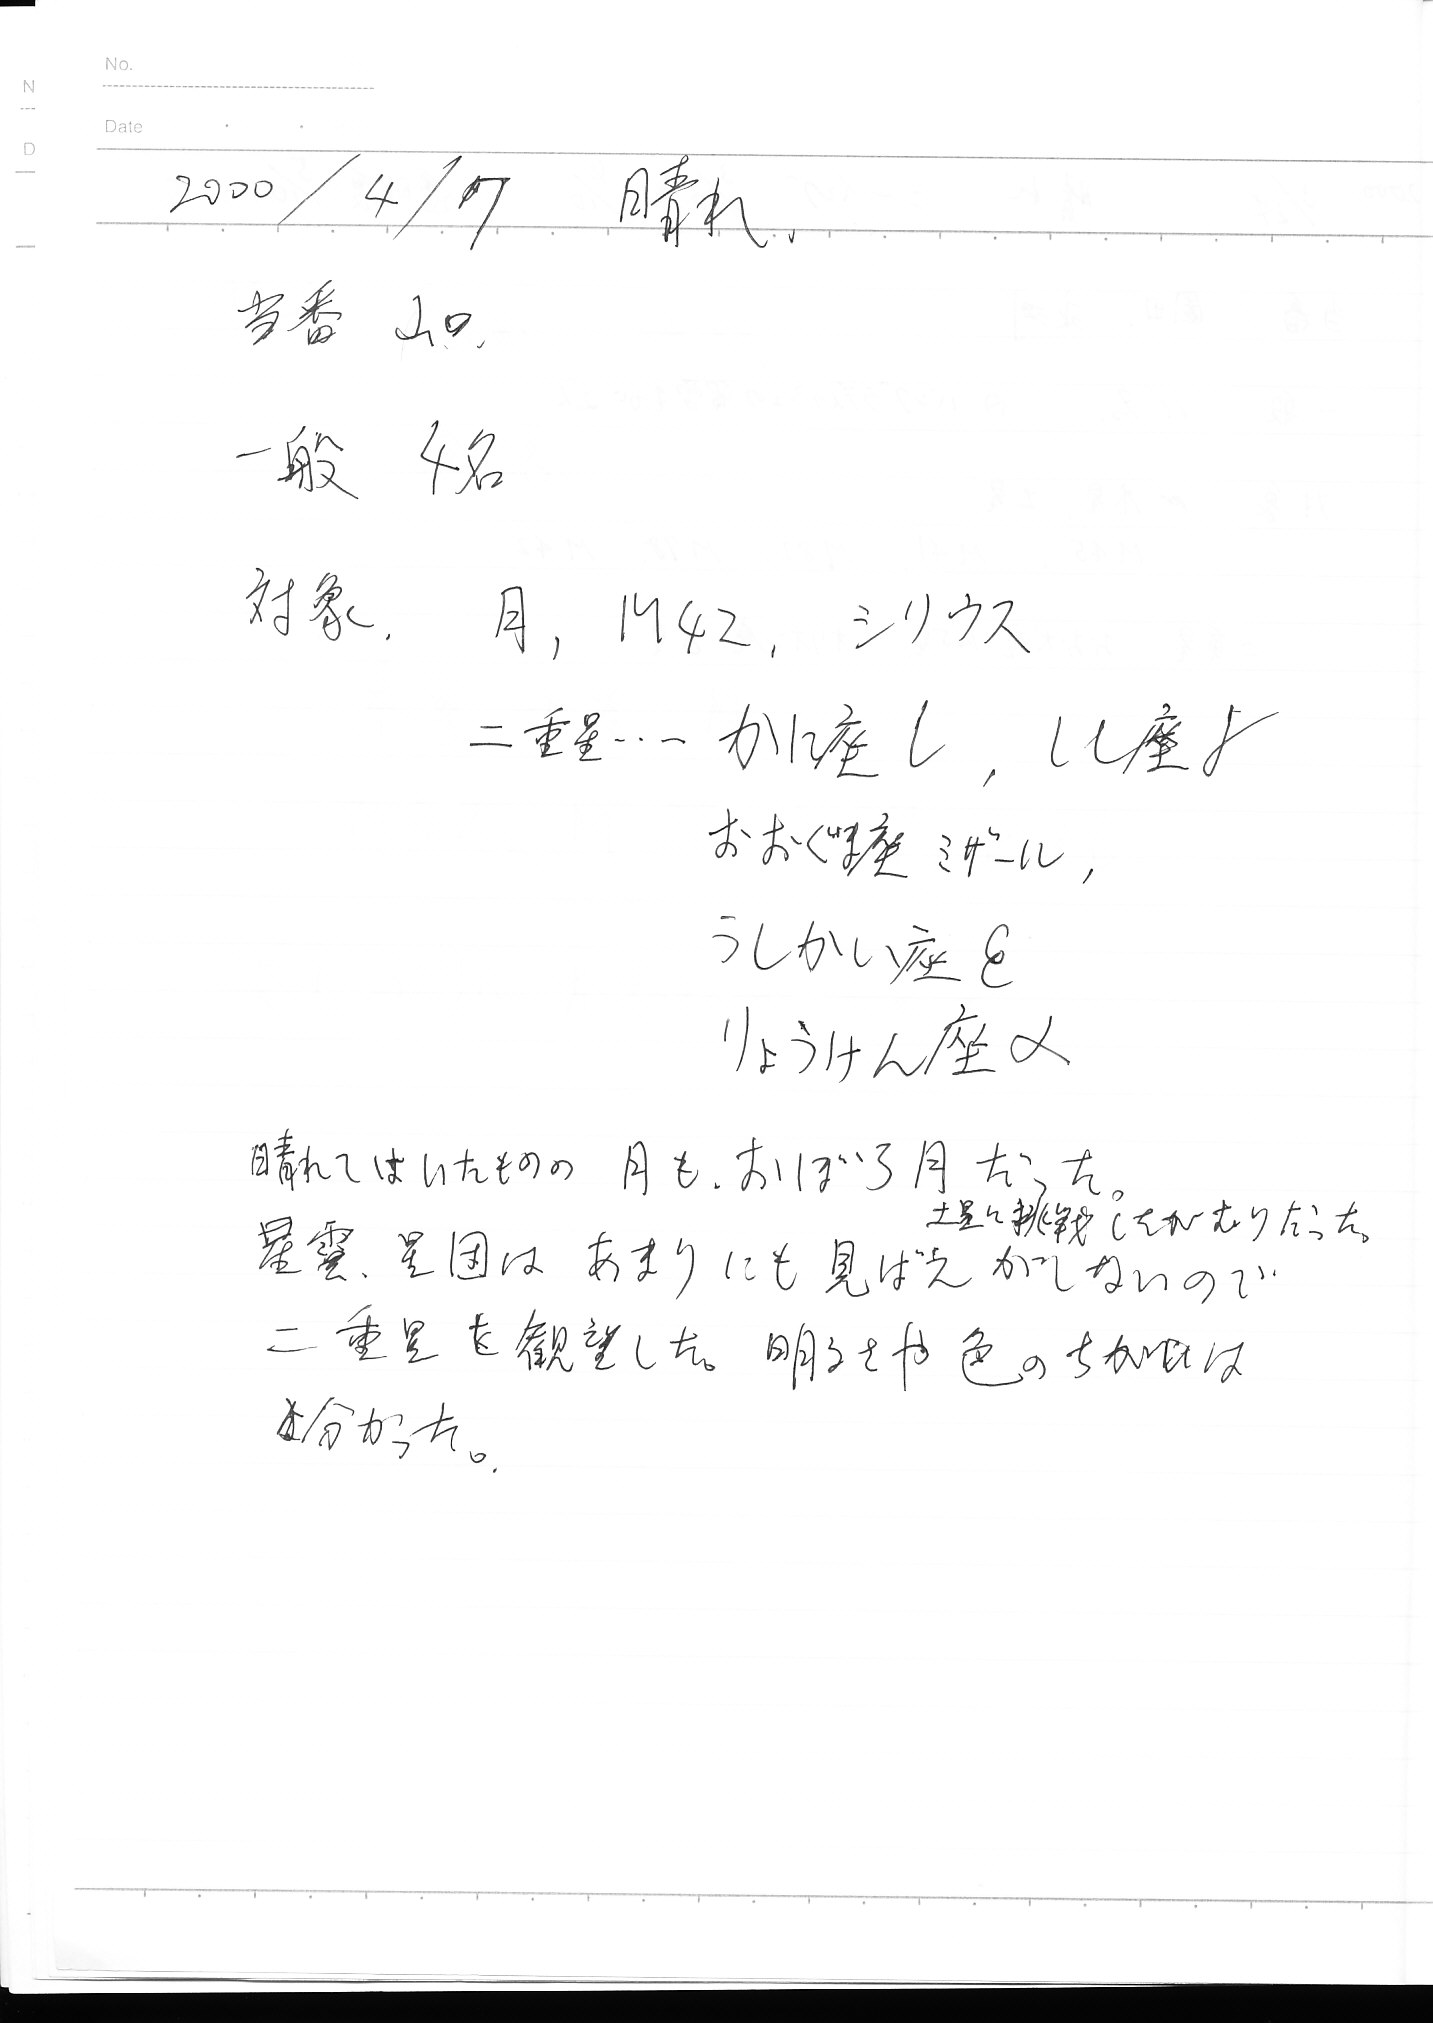 No.
Date
2000/4/7 晴れ.
当番 山口.
一般 4名
対象. 月, M42, シリウス
二重星… かに座ι, しし座γ
おおぐま座 ミザール,
うしかい座ε
りょうけん座α
晴れてはいたものの 月も、おぼろ月だった。
土星に挑戦したがむりだった。
星雲、星団は あまりにも見ばえがしないので
二重星を観望した。明るさや色のちがいは
分かった。